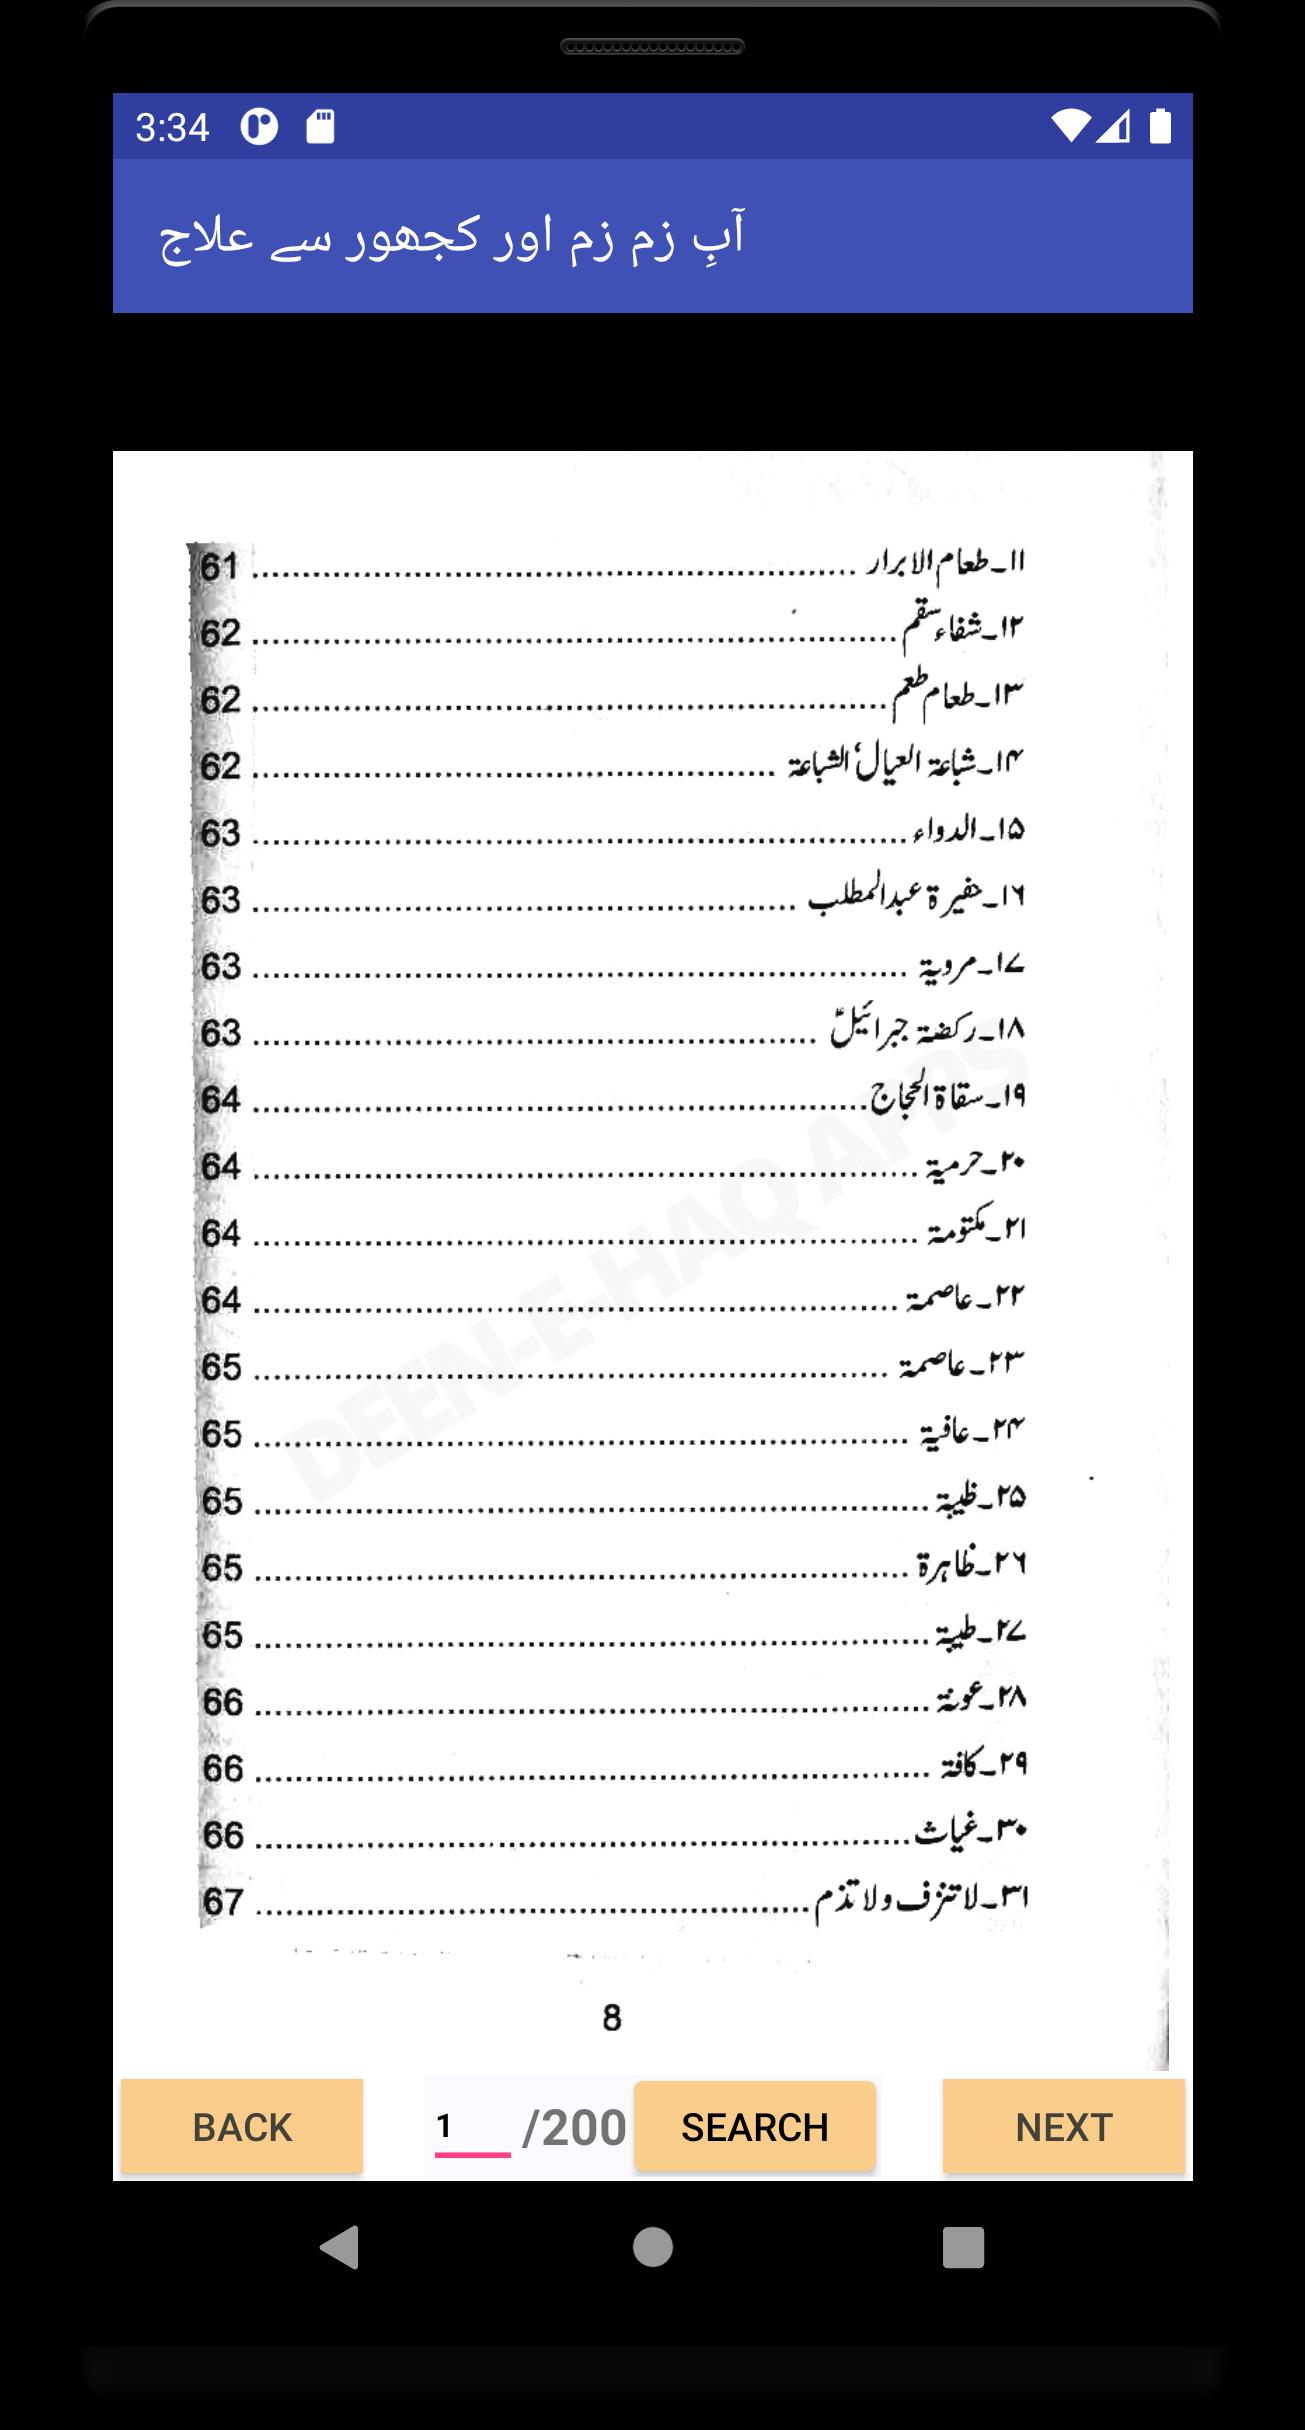 3:34
آبِ زم زم اور کجھور سے علاج
۱۱۔طعام الابرار ........ 61
۱۲۔شفاء سقم ........ 62
۱۳۔طعام طعم ........ 62
۱۴۔شباعۃ العیال‘ الشباعۃ ........ 62
۱۵۔الدواء ........ 63
۱۶۔حفیرۃ عبدالمطلب ........ 63
۱۷۔مرویۃ ........ 63
۱۸۔رکضۃ جبرائیلؑ ........ 63
۱۹۔سقاۃ الحجاج ........ 64
۲۰۔حرمیۃ ........ 64
۲۱۔مکتومۃ ........ 64
۲۲۔عاصمۃ ........ 64
۲۳۔عاصمۃ ........ 65
۲۴۔عافیۃ ........ 65
۲۵۔ظبیۃ ........ 65
۲۶۔ظاہرۃ ........ 65
۲۷۔طیبۃ ........ 65
۲۸۔عونۃ ........ 66
۲۹۔کافۃ ........ 66
۳۰۔غیاث ........ 66
۳۱۔لا تنزف ولا تذم ........ 67
DEEN-E-HAQ APPS
8
BACK 1 /200 SEARCH NEXT